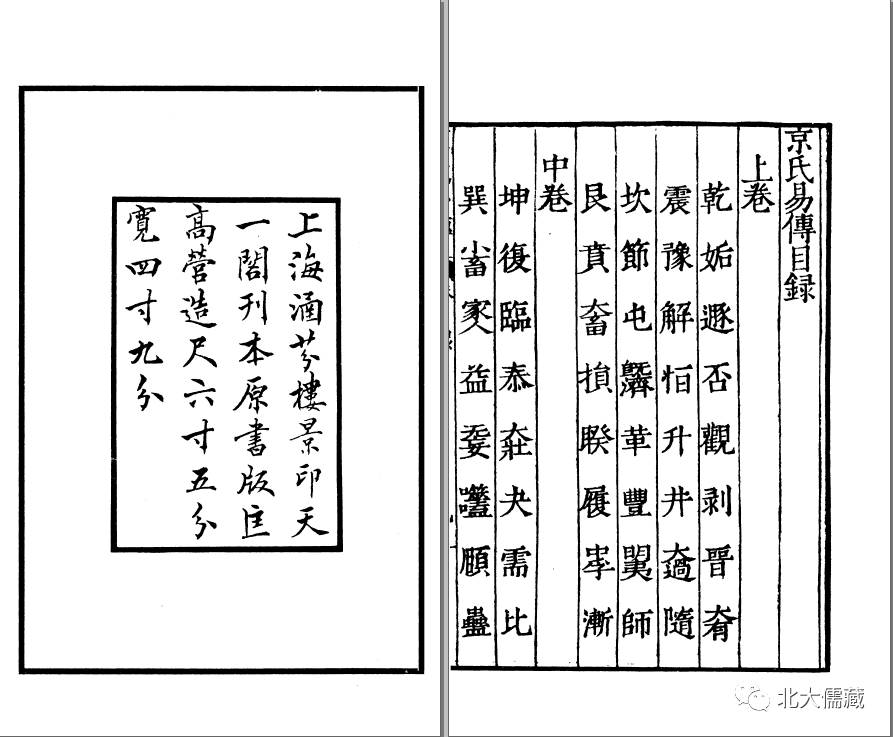 上海涵芬樓景印天
一閣刊本原書版匡
高營造尺六寸五分
寬四寸九分
京氏易傳目録
上卷
乾姤遯否觀剥晋大有
震豫解恒升井大過隨
坎節屯既濟革豐明夷師
艮賁大畜損睽履中孚漸
中卷
坤復臨泰大壯夬需比
巽小畜家人益无妄噬嗑頤蠱
北大儒藏